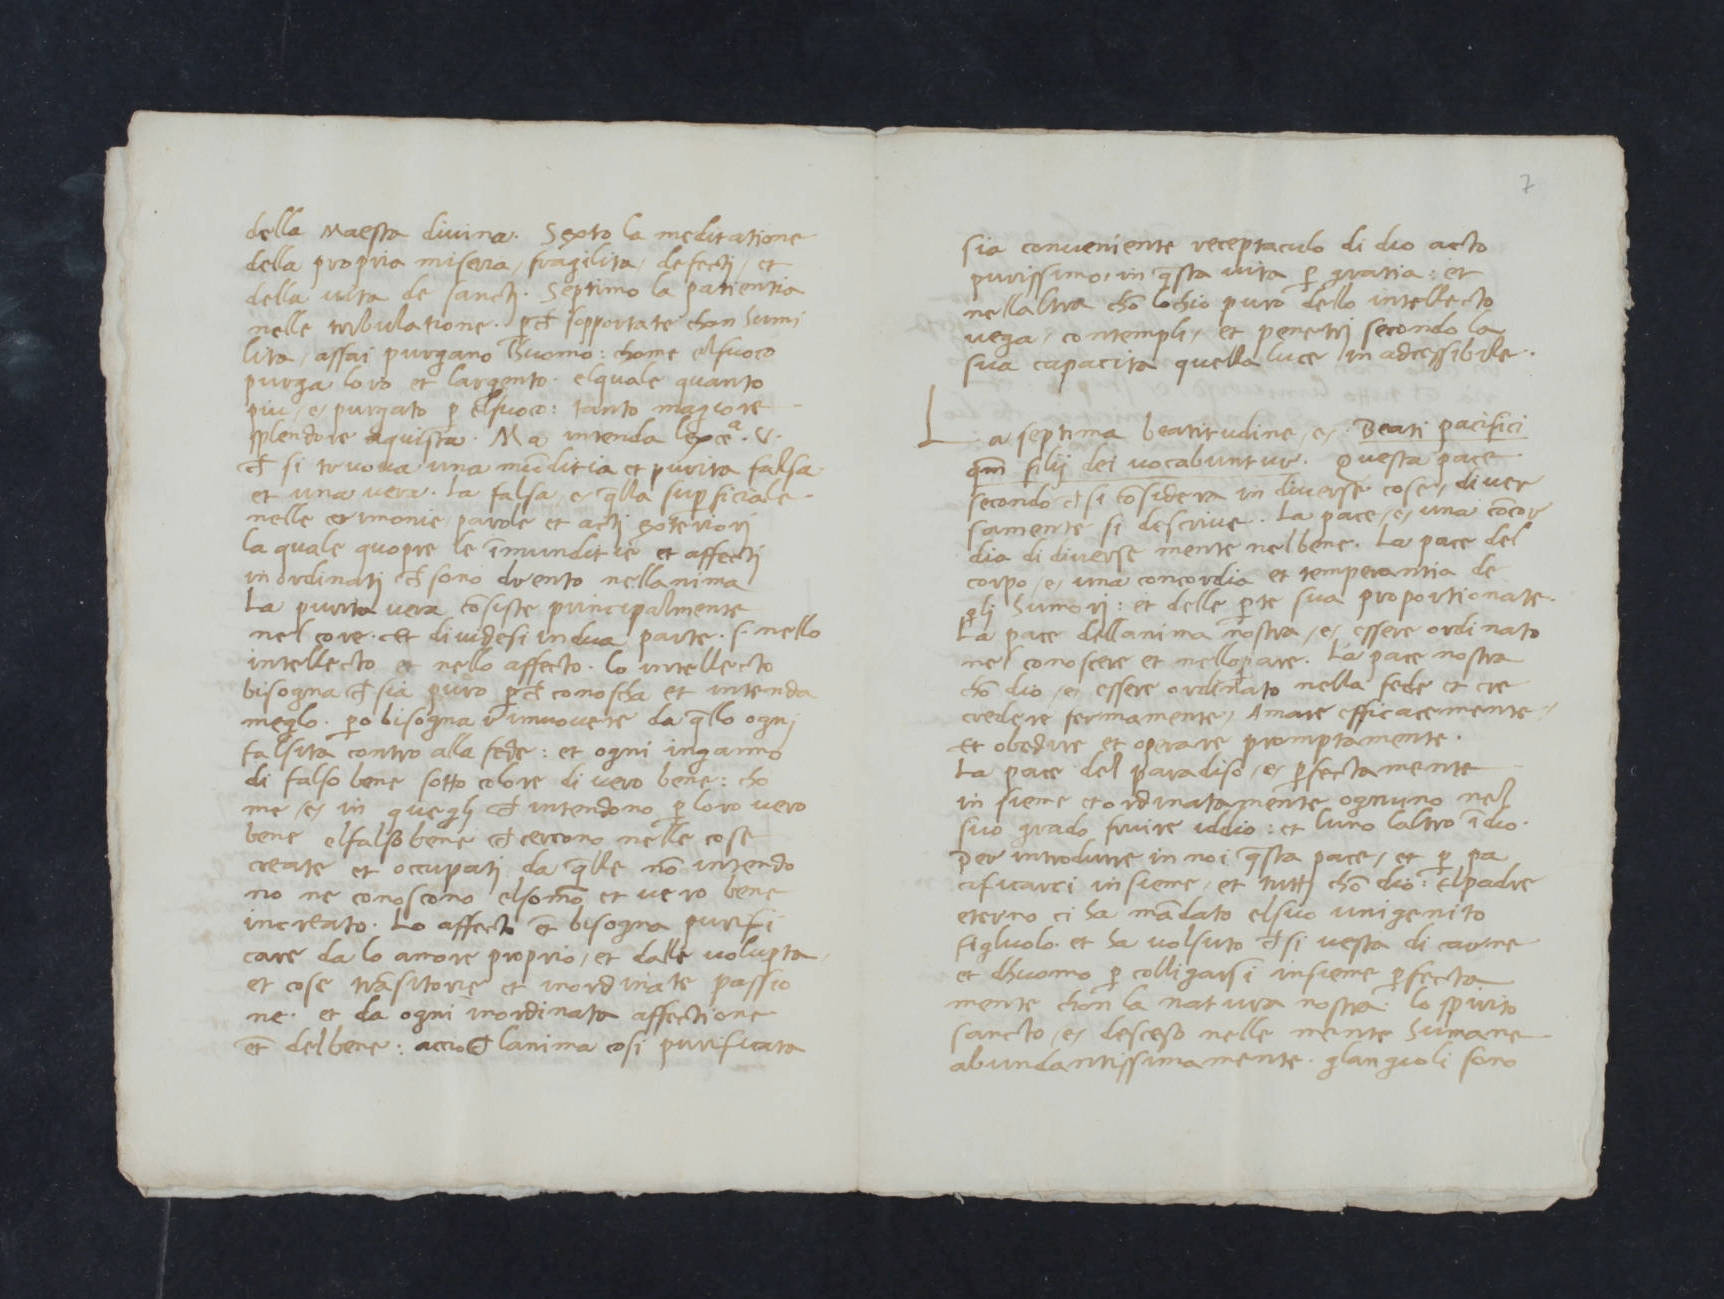 della Maesta diuina. Sexto la meditatione
della propria miseria / fragilita / defecti / et
della uita de sancti. Septimo la patientia
nelle tribulatione. p̄ch̄ sopportate chon humi
lita / assai purgano lhuomo: chome elfuoco
purga loro et largento. elquale quanto
piu / e / purgato p̄ elfuoco: tanto magiore
splendore aquista. Ma intenda lexcēᵃ. V.
ch̄ si truoua una mūditia et purita falsa
et una uera. La falsa / e q̄lla sup̄ficiale
nelle cerimonie parole et acti exteriori
la quale quopre le īmunditie et affecti
inordinati ch̄ sono drento nellanima
La purita uera cōsiste principalmente
nel core. Et diuidesi in dua parte. s. nello
intellecto et nello affecto. lo intellecto
bisogna ch̄ sia puro p̄ch̄ conoscha et intenda
meglo. p̄o bisogna rimuouere da q̄llo ogni
falsita contro alla fede: et ogni inganno
di falso bene sotto colore di uero bene: cho
me / e / in quegli ch̄ intendono p̄ loro uero
bene elfalso bene ch̄ cercono nelle cose
create et occupati da q̄lle nō intendo
no ne conoscono elsom̄o et uero bene
increato. Lo affecto ēt bisogna purifi
care da lo amore proprio / et dalle uolupta /
et cose trāsitorie et inordinate passio
ne. et da ogni inordinata affectione
ēt delbene: accioch̄ lanima cosi purificata
7
sia conueniente receptaculo di dio acto
purissimo / in q̄sta uita p̄ gratia: et
nellaltra chō lochio puro dello intellecto
uega / contempli / et penetri secondo la
sua capacita quella luce inadcessibile.
La septima beatitudine / e / Beati pacifici
qm̄ filij dei uocabuntur. Questa pace
secondo ch̄ si cōsidera in diuerse cose / diuer
samente si descriue. La pace / e / una cōcor
dia di diuerse mente nel bene. La pace del
corpo / e / una concordia et temperantia de
gli humori: et delle p̄te sua proportionate.
La pace dellanima nostra / e / essere ordinato
nel conoscere et nellopare. La pace nostra
chō dio / e / essere ordinato nella fede et cre
credere fermamente / Amare efficacemente /
Et obedire et operare promptamente.
La pace del paradiso / e / p̄fectamente
insieme et ordinatamente ognuno nel
suo grado fruire iddio: et luno laltro ī dio.
Per introdurre in noi q̄sta pace / et p̄ pa
cificarci insieme / et tutti chō dio: Elpadre
eterno ci ha mādato elsuo unigenito
figluolo. et ha uolsuto ch̄ si uesta di carne
et dhuomo p̄ colligarsi insieme p̄fecta
mente chon la natura nostra. lo spirito
sancto / e / desceso nelle mente humane
abundantissimamente. glangioli sono